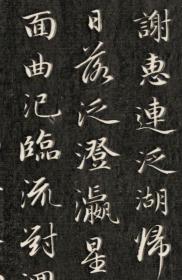 謝惠連泛湖歸
日落泛澄瀛星
面曲汜臨流對